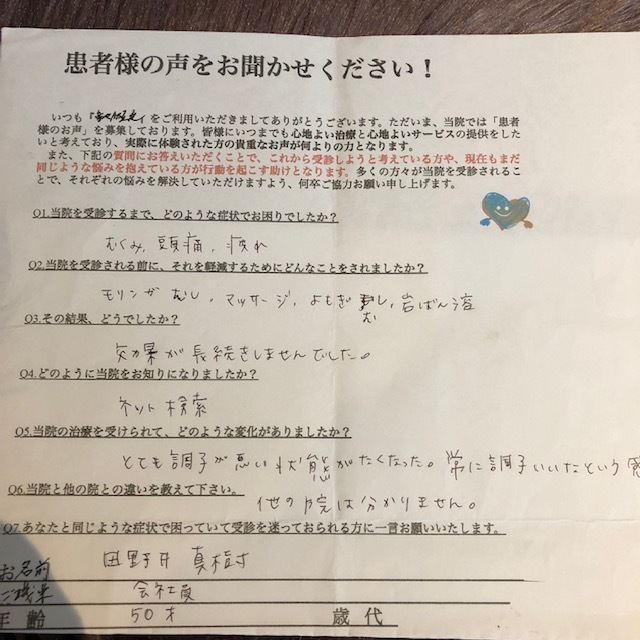 患者様の声をお聞かせください！
いつも『』をご利用いただきましてありがとうございます。ただいま、当院では「患者
様のお声」を募集しております。皆様にいつまでも心地よい治療と心地よいサービスの提供をした
いと考えており、実際に体験された方の貴重なお声が何よりの力となります。
また、下記の質問にお答えいただくことで、これから受診しようと考えている方や、現在もまだ
同じような悩みを抱えている方が行動を起こす助けとなります。多くの方々が当院を受診されるこ
とで、それぞれの悩みを解決していただけますよう、何卒ご協力お願い申し上げます。
Q1.当院を受診するまで、どのような症状でお困りでしたか？
むくみ，頭痛，疲れ
Q2.当院を受診される前に、それを軽減するためにどんなことをされましたか？
モリンガむし，マッサージ，よもぎむし，岩ばん溶
Q3.その結果、どうでしたか？
効果が長続きしませんでした。
Q4.どのように当院をお知りになりましたか？
ネット検索
Q5.当院の治療を受けられて、どのような変化がありましたか？
とても調子が悪い状態がなくなった。常に調子いいたという感
Q6.当院と他の院との違いを教えて下さい。
他の院は分かりません。
Q7.あなたと同じような症状で困っていて受診を迷っておられる方に一言お願いいたします。
お名前 田野井 真樹
ご職業 会社員
年齢 50才 歳代